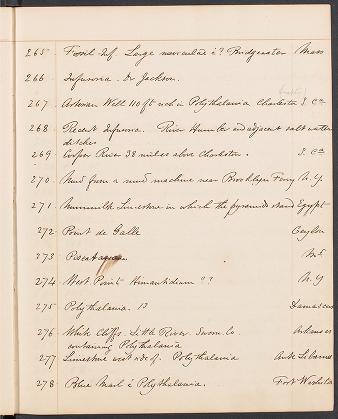 265 Fossil Inf. Large naviculae i? Bridgewater Mass
266 Infusoria. Dr Jackson.
267 Artesian Well 110 ft rich in Polythalamia Charleston S. Ca
268 Recent Infusoria. River Humber and adjacent salt water
ditches
269 Cooper River 38 miles above Charleston. S. Ca
270 Mud from a mud machine near Brooklyn Ferry N. Y
271 Nummulit Limestone in which the pyramids stand Egypt
272 Point de Galle Ceylon
273 Piscataqua
274 West Point Himantidium ?? N. Y
275 Polythalamia. 13 Damascus
276 White Cliffs. Little River. Co. Arkansas
containing Polythalamia
277 Limestone west side of. Polythalamia Ante Libanus
278 Blue Marl i Polythalamia. Fort Washita